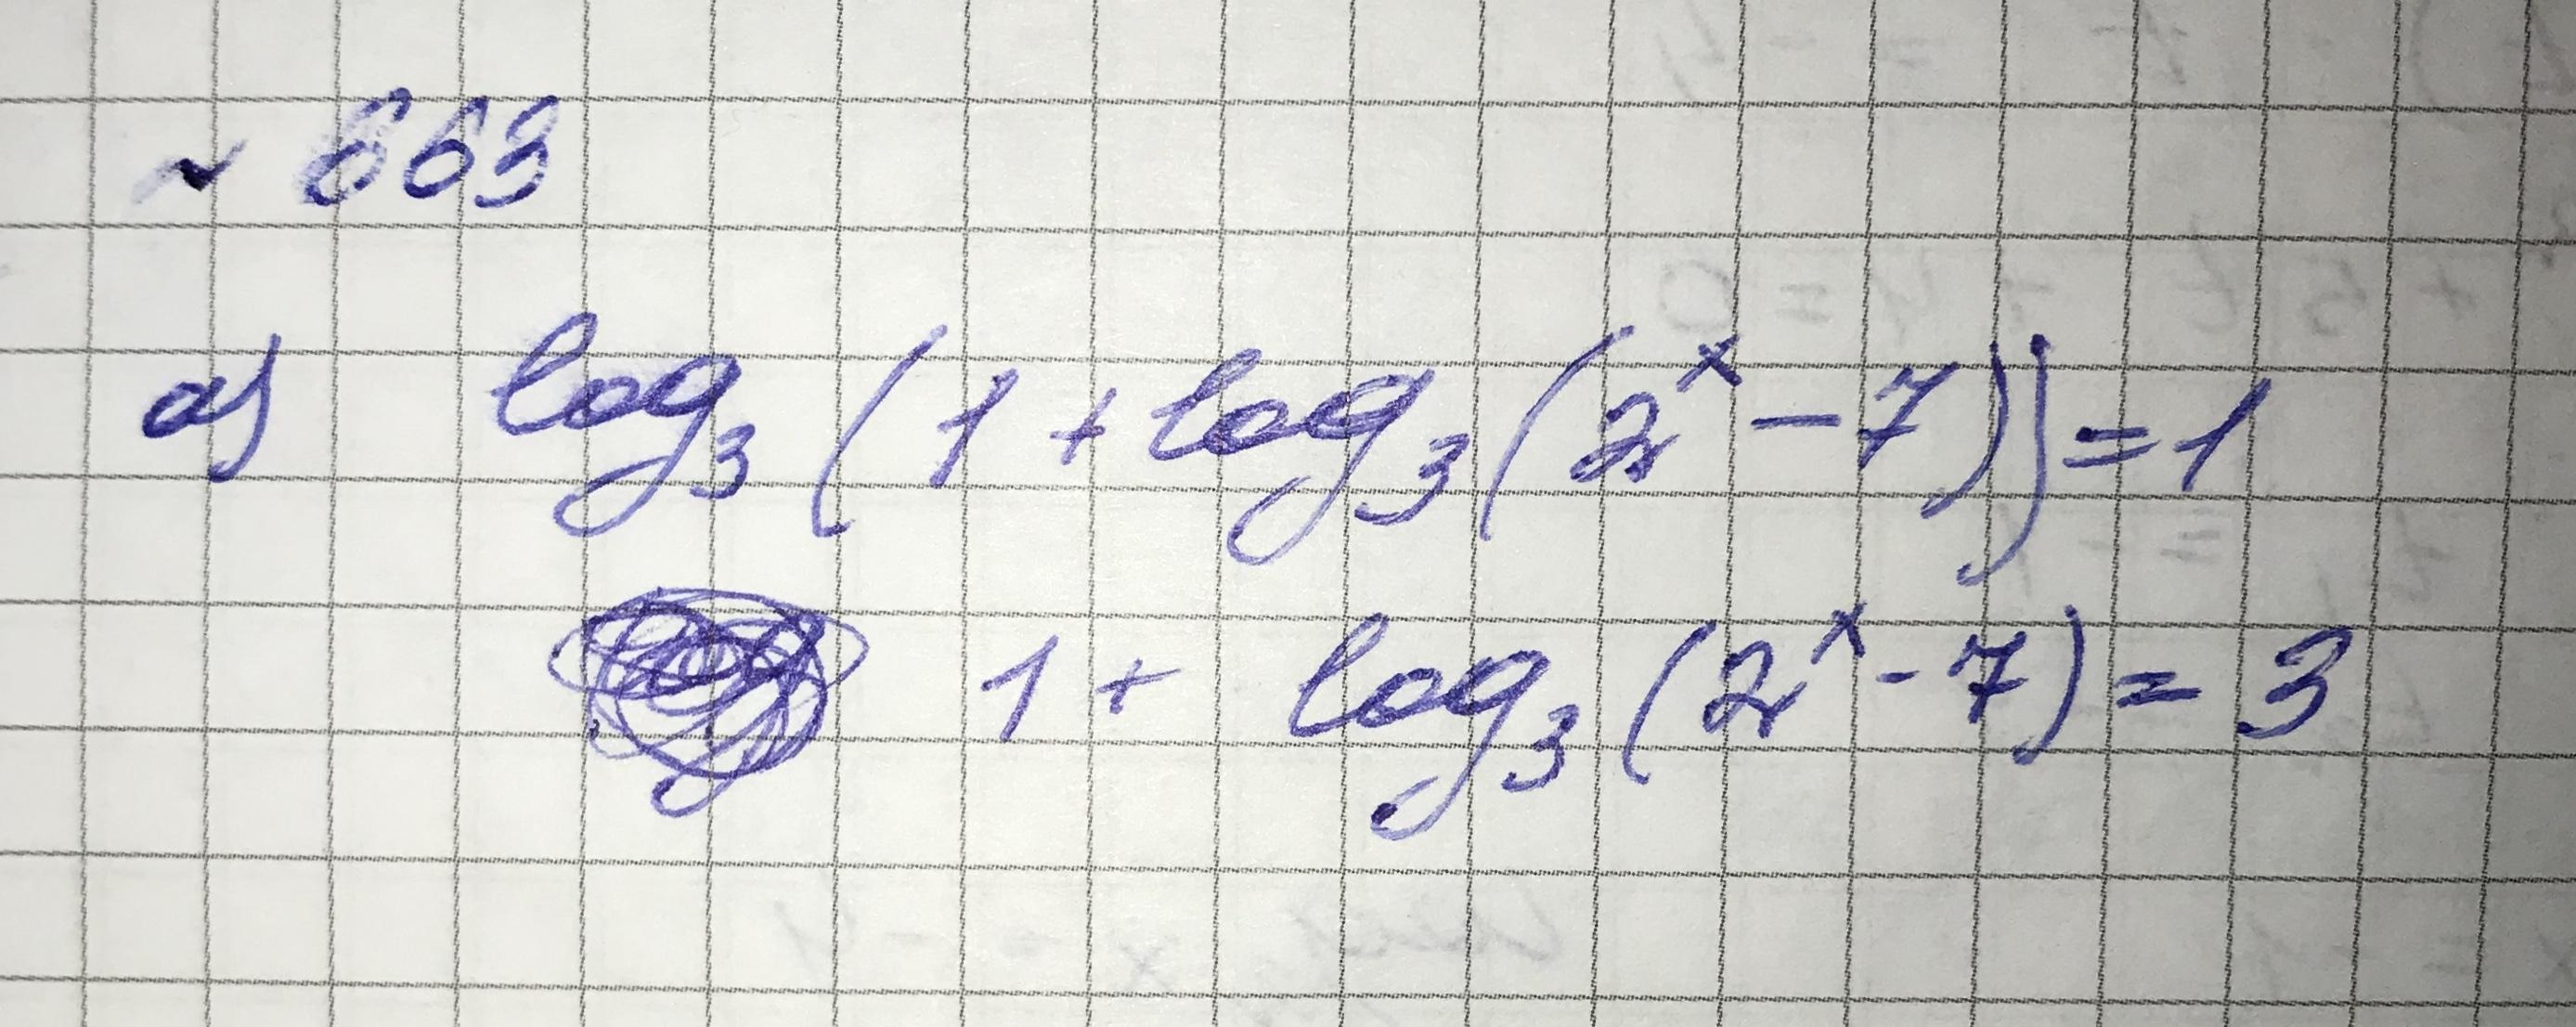 ~ 663
a) log₃(1+log₃(2ˣ-7))=1
1+ log₃(2ˣ-7)=3